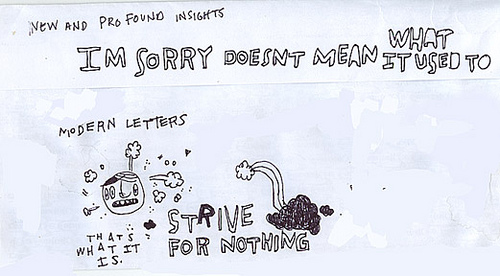 NEW AND PROFOUND INSIGHTS
I'M SORRY DOESNT MEAN WHAT IT USED TO
MODERN LETTERS
STRIVE
FOR NOTHING
THATS
WHAT IT
IS.